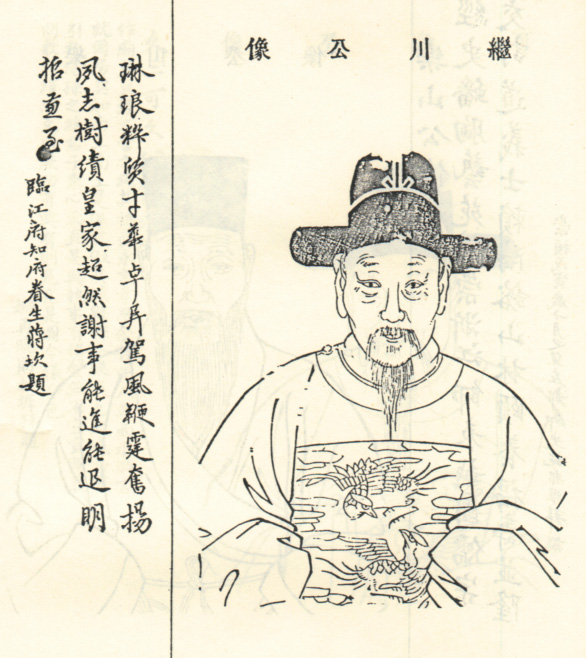 繼川公像
琳琅粹質才華卓异駕風鞭霆奮揚
夙志樹績皇家超然謝事能進能退明
哲兼至
臨江府知府眷生蔣題